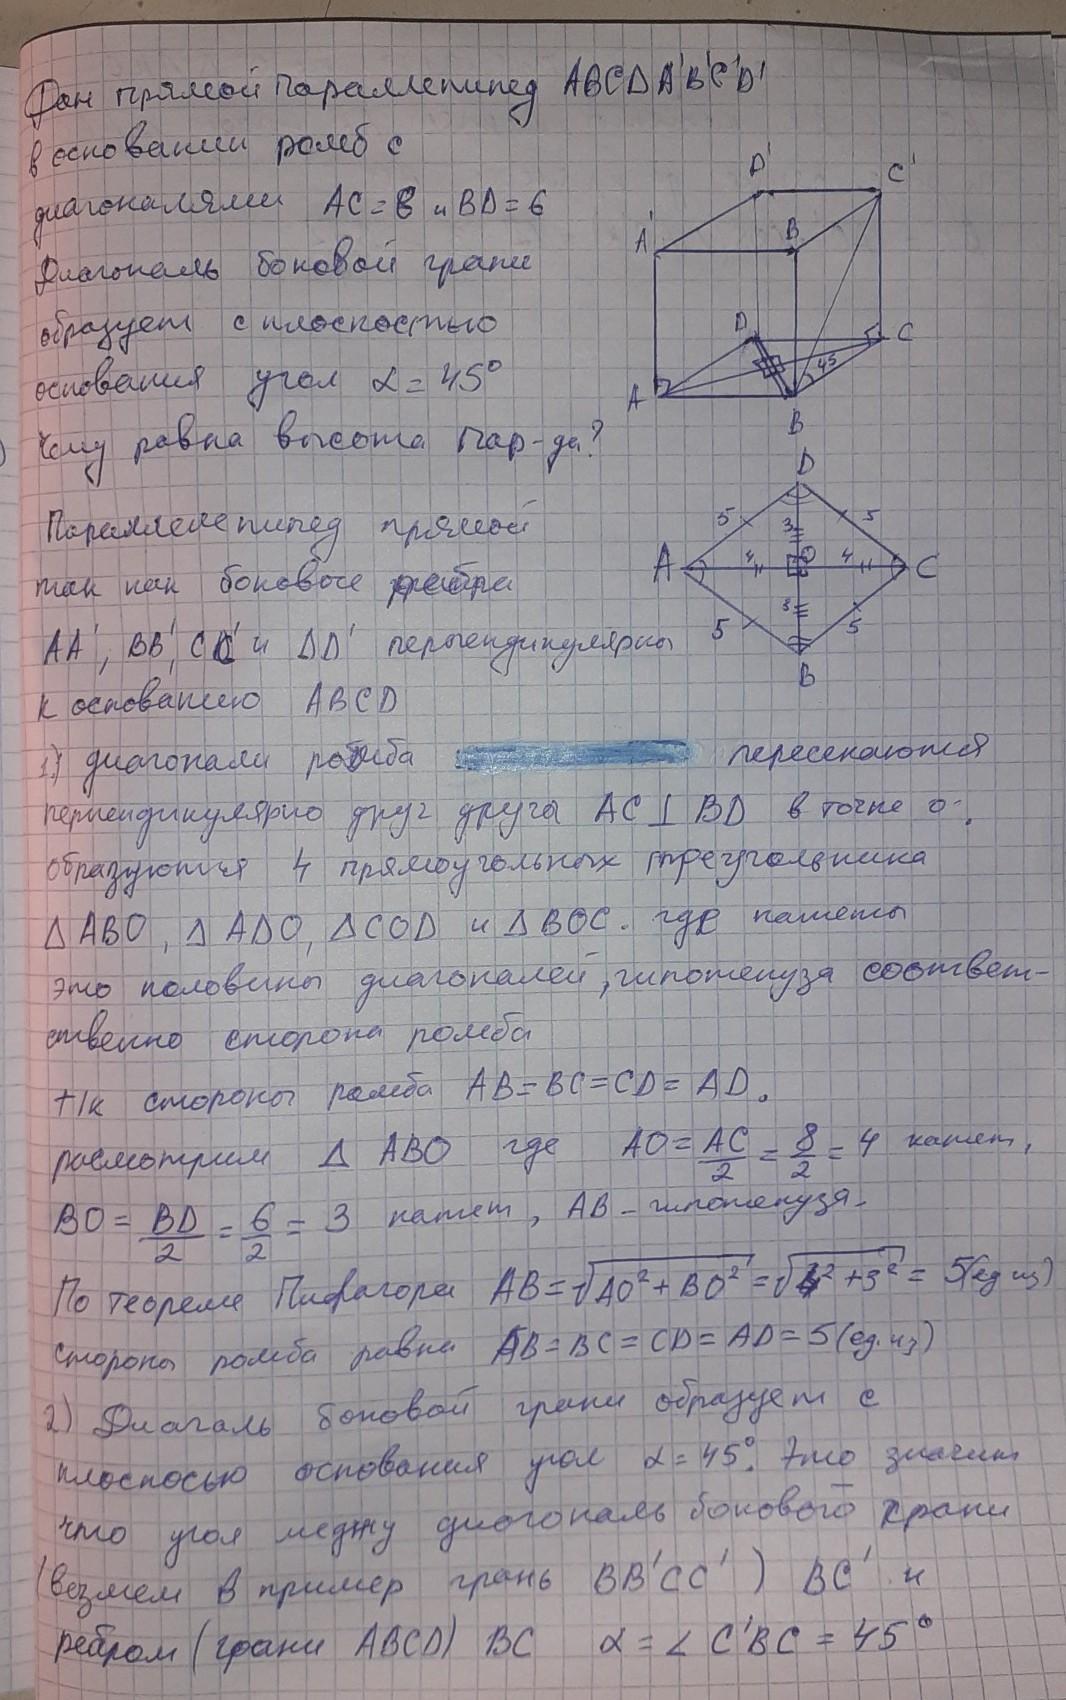 Дан прямой параллепипед ABCDA'B'C'D'
в основании ромб с
диагоналями AC=8 и BD=6
Диагональ боковой грани
образует с плоскостью
основания угол α=45°
Чему равна высота пар-да?
D'
C'
A'
B'
D
C
45
A
B
D
5
3
5
A
4
O
4
C
5
3
5
B
Параллелепипед прямой
так как боковые ребра
AA', BB', CC' и DD' перпендикулярны
к основанию ABCD
1) диагонали ромба пересекаются
перпендикулярно друг друга AC⊥BD в точке о.
образуются 4 прямоугольных треугольника
Δ ABO, Δ ADO, Δ COD и Δ BOC. где катеты
это половины диагоналей, гипотенуза соответ-
ственно сторона ромба
т/к стороны ромба AB=BC=CD=AD.
расмотрим Δ ABO где AO=AC/2=8/2=4 катет,
BO=BD/2=6/2=3 катет, AB-гипотенуза.
По теореме Пифагора AB=√AO²+BO²=√4²+3²=5(ед из)
стороны ромба равна AB=BC=CD=AD=5(ед.из)
2) Диагаль боковой грани образует с
плоскосью основания угол α=45°. Это значит
что угол между диогональ бокового грани
(везмем в пример грань BB'CC') BC' и
ребром (грани ABCD) BC α=∠C'BC=45°